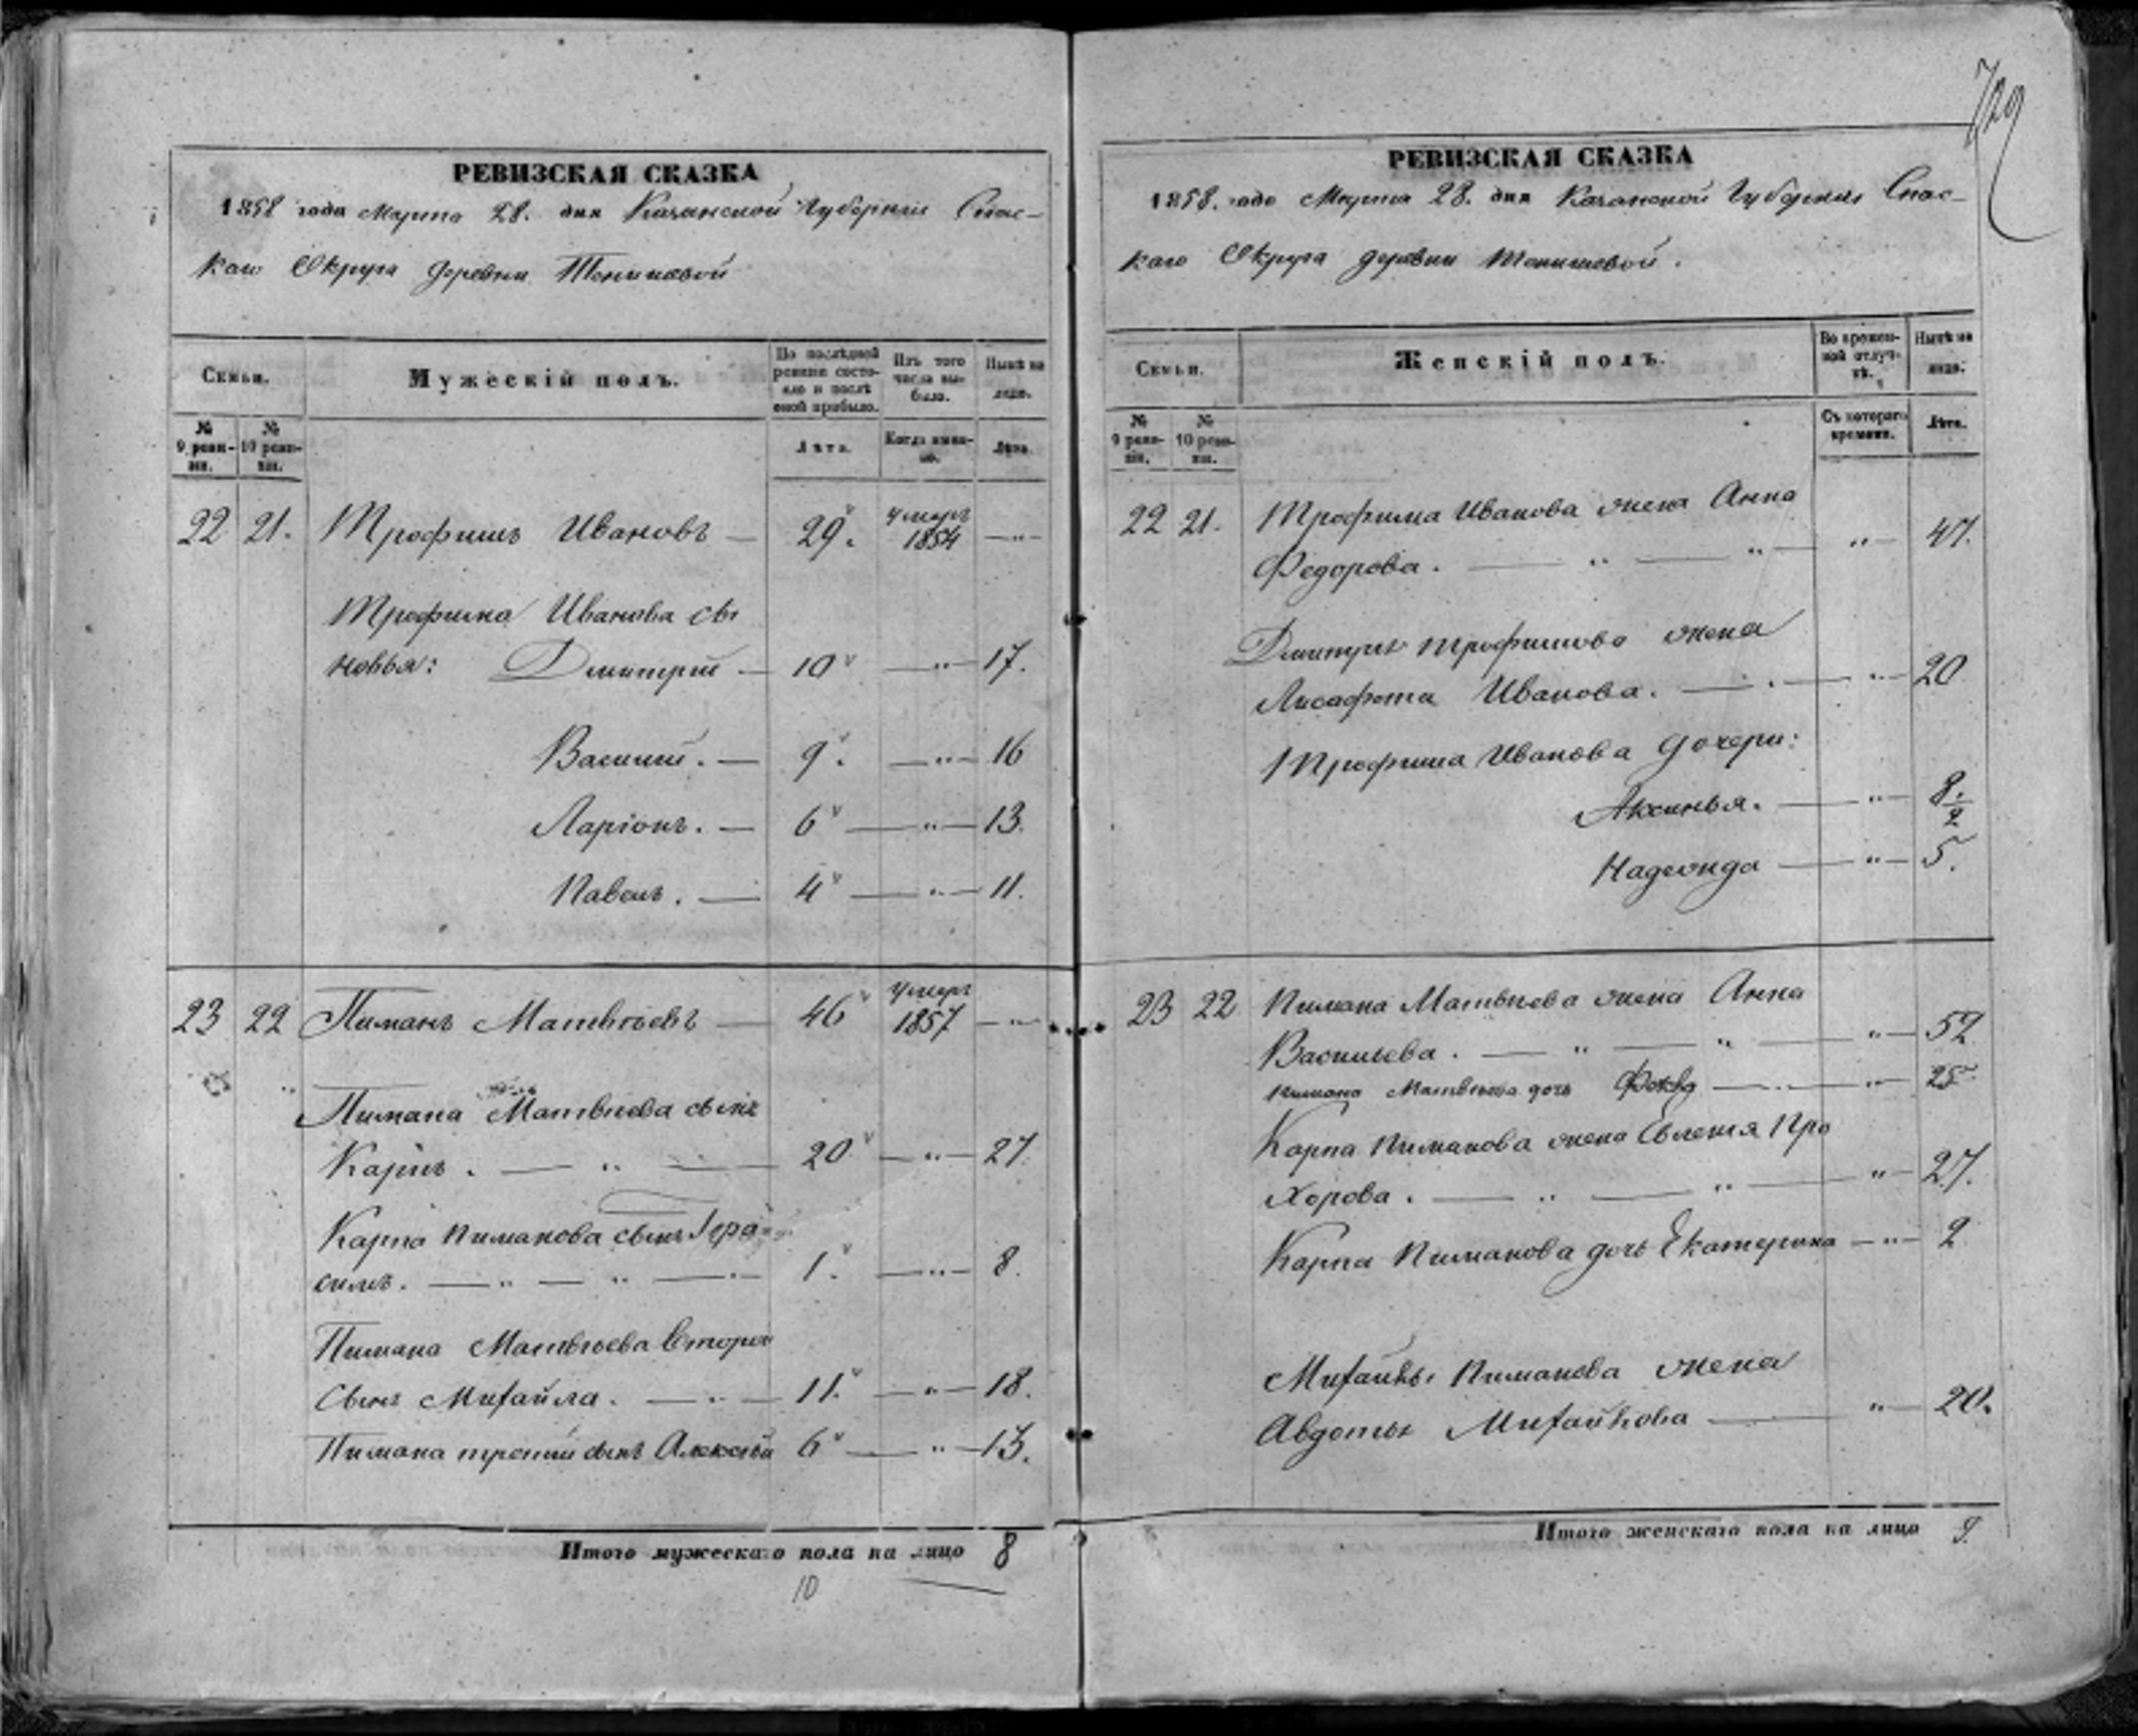 729
РЕВИЗСКАЯ СКАЗКА
1858 года Марта 28. дня Казанской Губернии Спас-
каго Округа деревни
Семьи.
Мужескій полъ.
По послѣдней ревизіи состояло и послѣ оной прибыло.
Изъ того числа выбыло.
Нынѣ на лицо.
№ 9 ревизіи.
№ 10 ревизіи.
Лѣта.
Когда именно.
Лѣта.
22 21. Трофимъ Ивановъ — 29. умеръ 1854 — " —
Трофима Иванова сы
новья: Дмитрій — 10 — " — 17.
Василій. — 9. — " — 16
Ларіонъ. — 6 — " — 13.
Павелъ. — 4 — " — 11.
23 22 Пиманъ Матвѣевъ — 46 умеръ 1857 — " —
Пимана Матвѣева сынъ
Карпъ. — " — 20 — " — 27.
Карпа Пиманова сынъ Гера-
симъ. — " — " — 1. — " — 8.
Пимана Матвѣева второй
Сынъ Михайла. — " — 11. — " — 18.
Пимана третій сынъ Алексѣй 6 — " — 13.
Итого мужескаго пола на лицо 8
10
РЕВИЗСКАЯ СКАЗКА
1858. года Марта 28. дня Казанской Губерніи Спас-
каго Округа деревни
Семьи.
Женскій полъ.
Во временной отлучкѣ.
Нынѣ на лицо.
№ 9 ревизіи.
№ 10 ревизіи.
Съ котораго времени.
Лѣта.
22 21. Трофима Иванова жена Анна
Федорова. — " — " — " — 47.
Дмитрія Трофимова жена
Иванова. — " — " — 20
Трофима Иванова дочери:
Аксинья. — " — 8. 2
Надежда — " — 5.
23 22 Пимана Матвѣева жена Анна
Васильева. — " — " — " — 52
Пимана Матвѣева дочь — " — " — 25
Карпа Пиманова жена Евгенія Про
хорова. — " — " — " — 27.
Карпа Пиманова дочь Екатерина — " — 2
Михайлы Пиманова жена
Авдотья Михайлова — " — 20.
Итого женскаго пола на лицо 9.